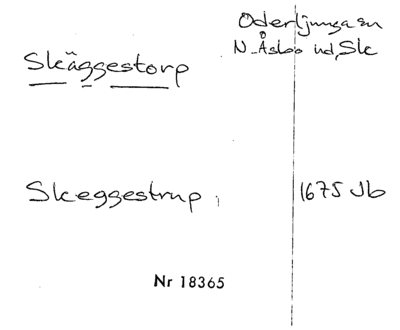 Oderljunga sn
N. Åsbo hd, Sk
Skäggestorp
Skeggestrup, 1675 Jb
Nr 18365